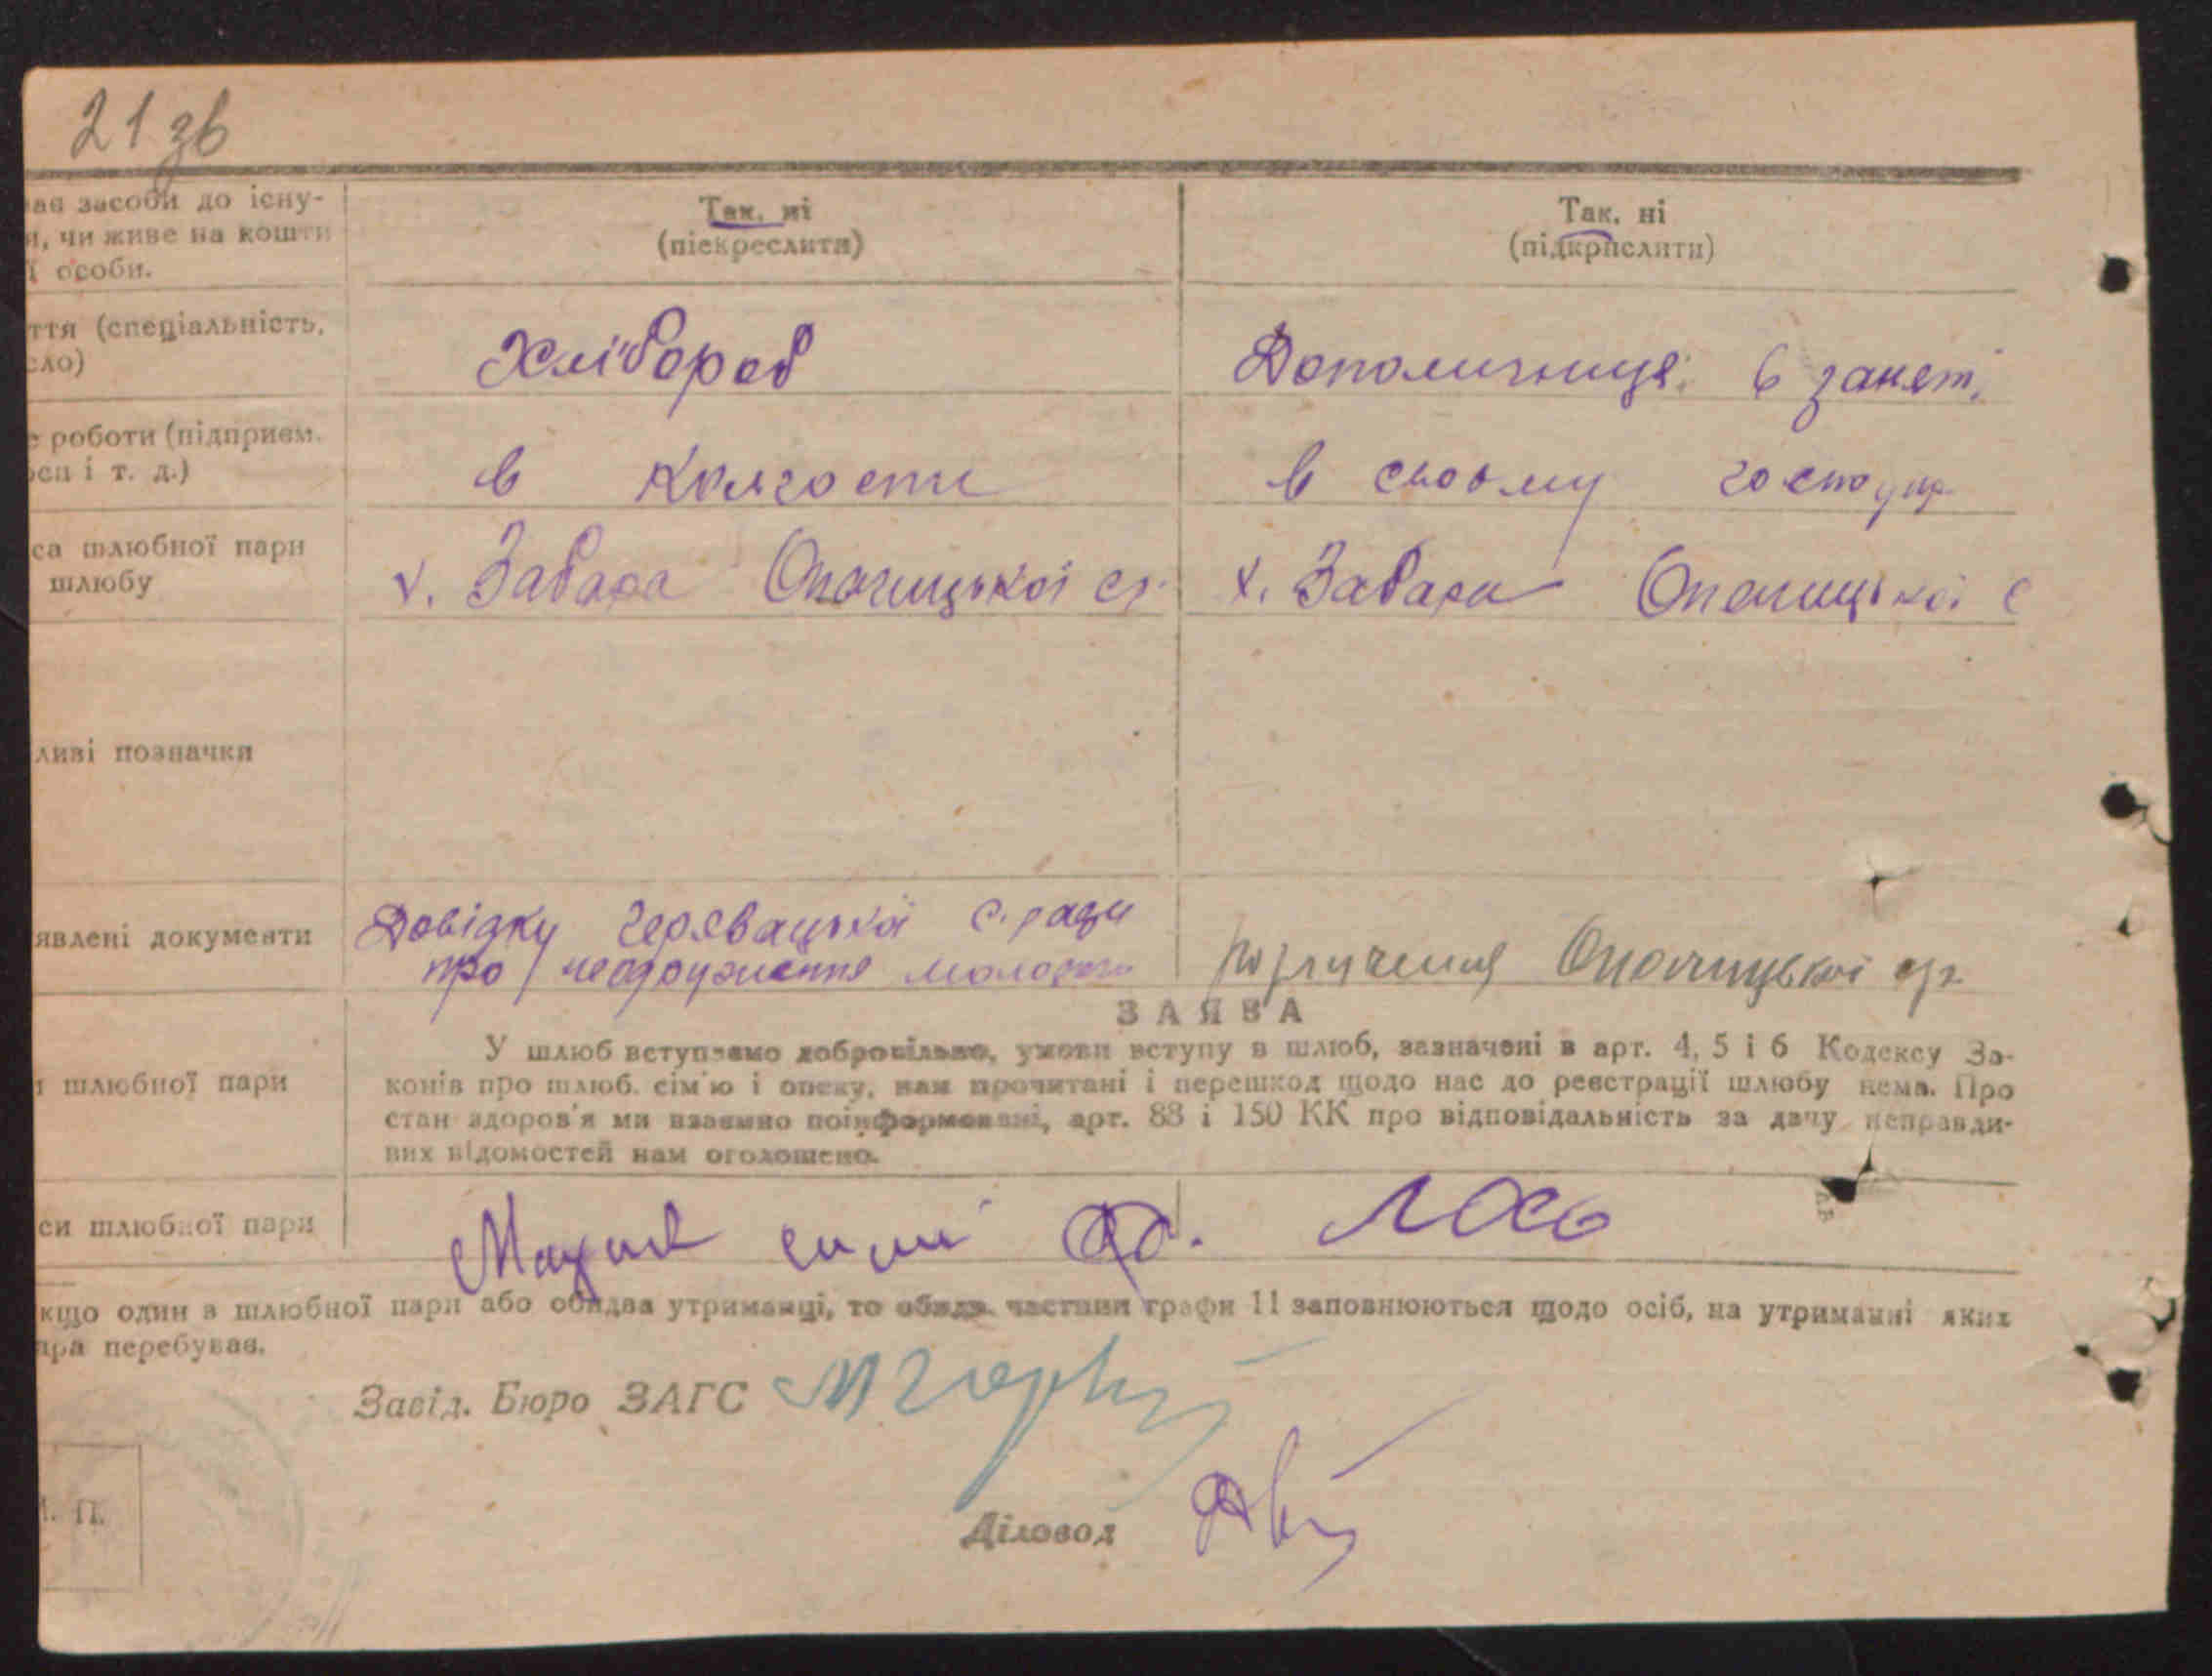 21 зв
ає засоби до існу-
и, чи живе на кошти
ї особи.
Так, ні
(піскреслити)
Так, ні
(підкрислити)
ття (спеціальність,
сло)
Хлібороб
Допомичниця в занят.
роботи (підприєм.
осп і т. д.)
в колгоспи
в своьму господар
са шлюбної пари
шлюбу
х. Забара Опачицької ср.
х. Забара Опачицької с
ливі позначки
явлені документи
Довідку Черевацької с. ради
про неодруження молодого
поручення Опачицької с/р
ЗАЯВА
і шлюбної пари
У шлюб вступаємо добровільно, умови вступу в шлюб, зазначені в арт. 4, 5 і 6 Кодексу За-
конів про шлюб. сім'ю і опеку, нам прочитані і перешкод щодо нас до реєстрації шлюбу нема. Про
стан здоров'я ми взаємно поінформовані, арт. 88 і 150 КК про відповідальність за дачу неправди-
вих відомостей нам оголошено.
си шлюбної пари
Лось
кщо один з шлюбної пари або обидва утриманці, то обидв. частини графи 11 заповнюються щодо осіб, на утриманні яких
ара перебуває.
Завід. Бюро ЗАГС
Діловод
М. П.